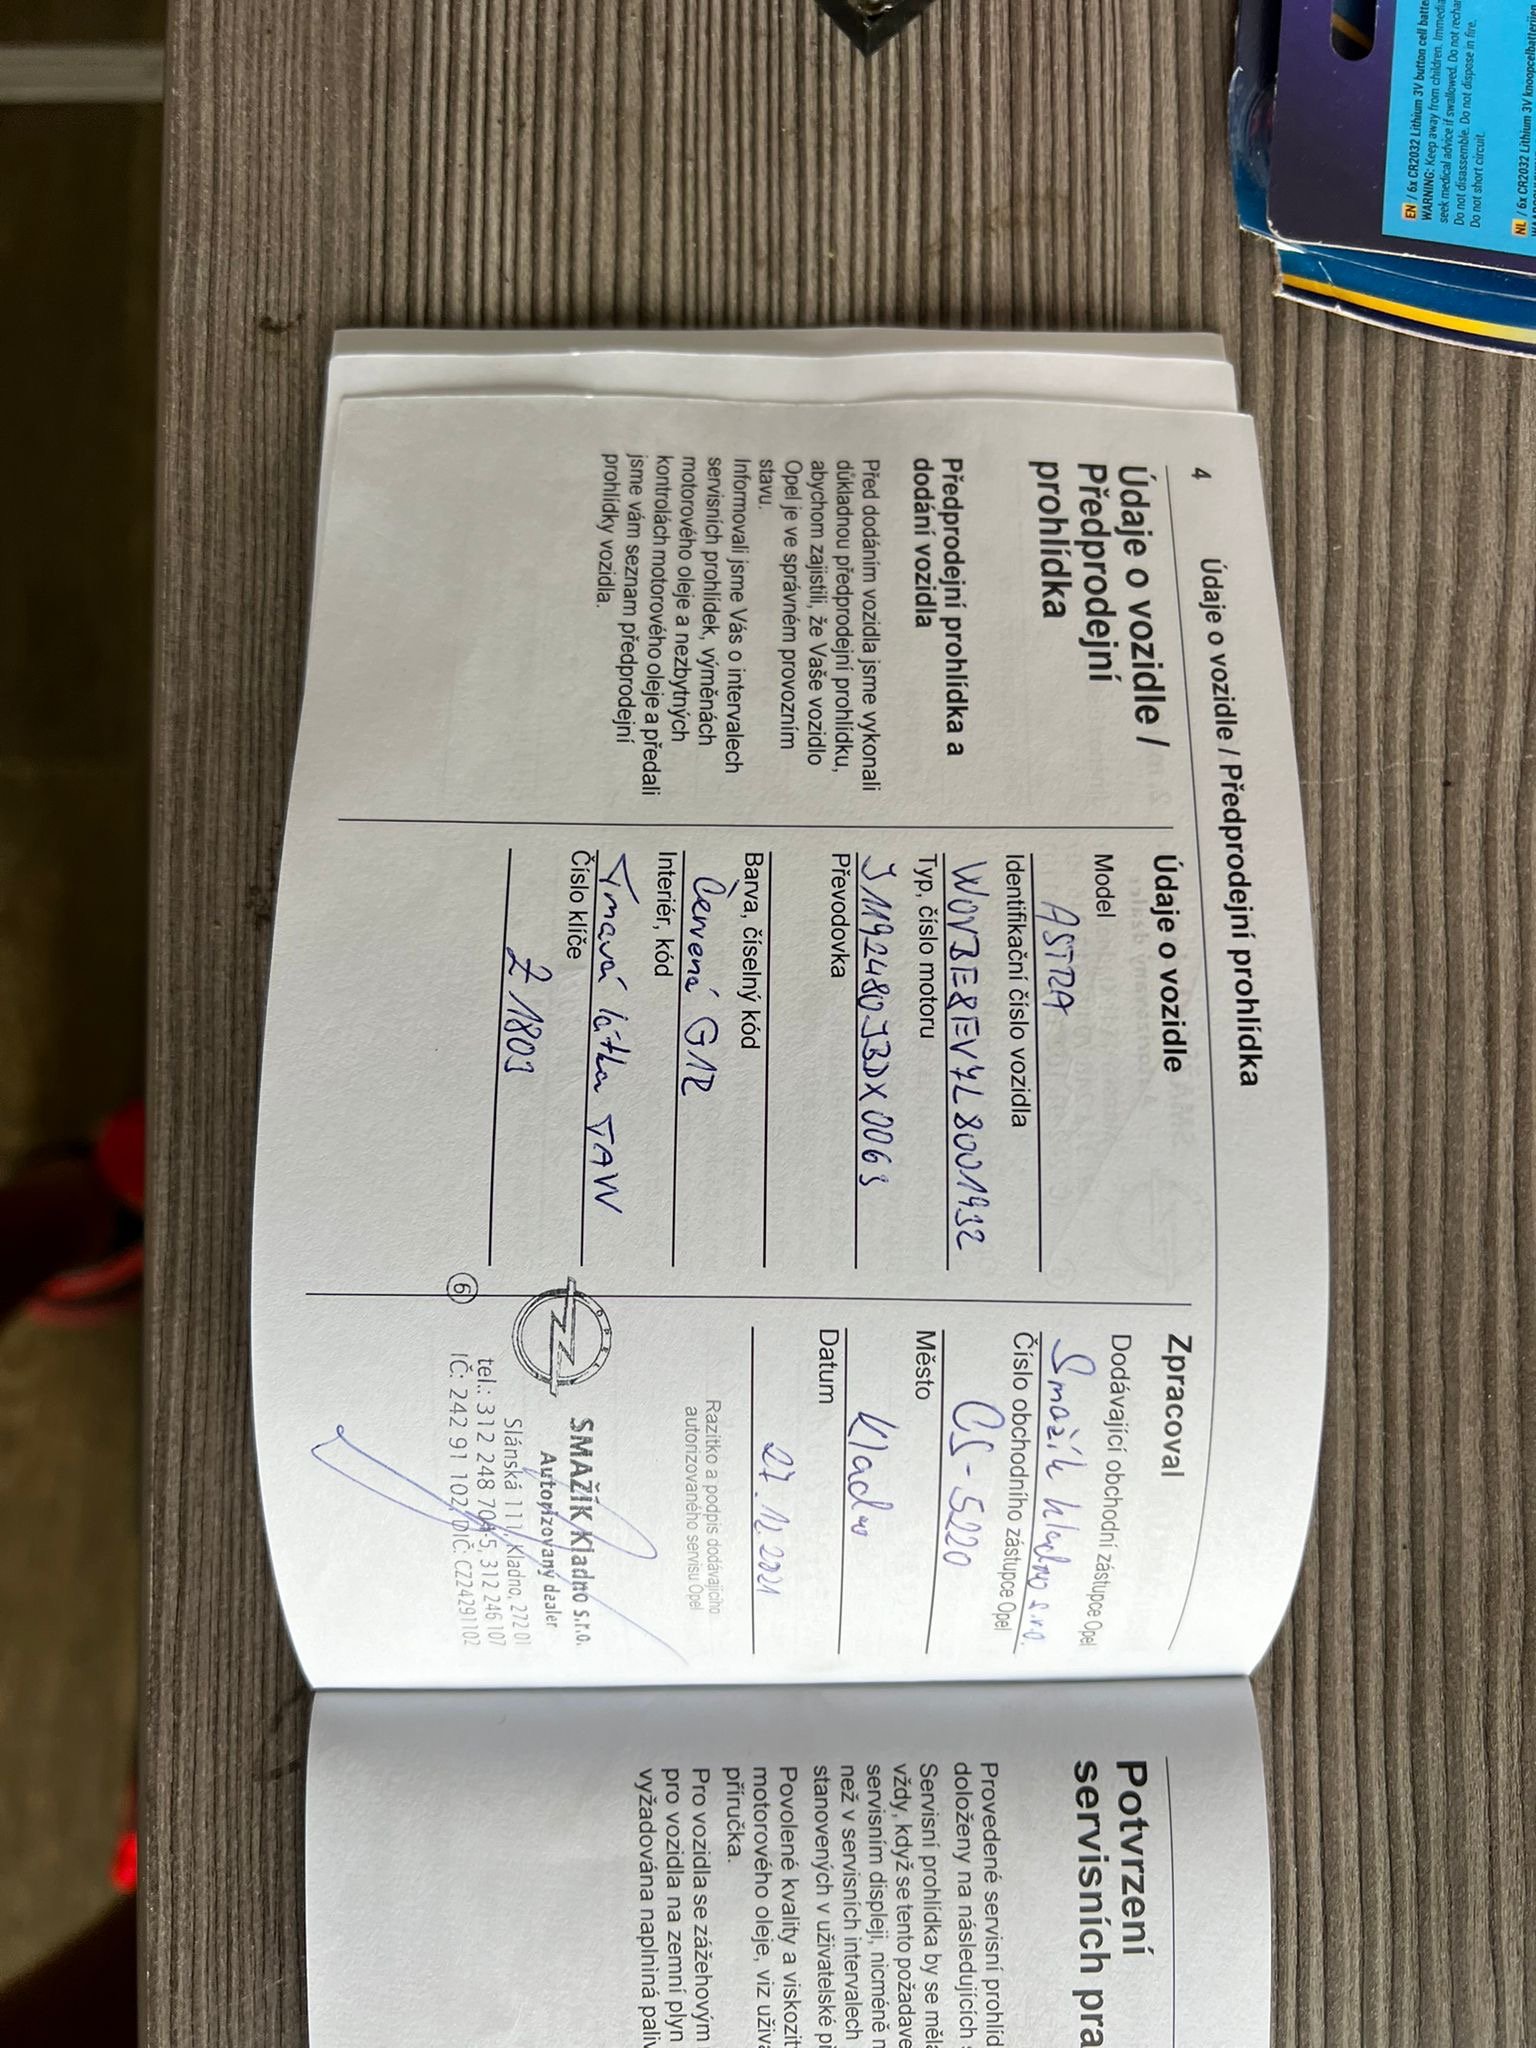 4
Údaje o vozidle / Předprodejní prohlídka
Údaje o vozidle /
Předprodejní
prohlídka
Předprodejní prohlídka a
dodání vozidla
Před dodáním vozidla jsme vykonali
důkladnou předprodejní prohlídku,
abychom zajistili, že Vaše vozidlo
Opel je ve správném provozním
stavu.
Informovali jsme Vás o intervalech
servisních prohlídek, výměnách
motorového oleje a nezbytných
kontrolách motorového oleje a předali
jsme vám seznam předprodejní
prohlídky vozidla.
Údaje o vozidle
Model
ASTRA
Identifikační číslo vozidla
W0VBE8EV7L8001932
Typ, číslo motoru
J1192480JBDX0063
Převodovka
Barva, číselný kód
Červená G1R
Interiér, kód
Tmavá látka TAW
Číslo klíče
Z1803
Zpracoval
Dodávající obchodní zástupce Opel
Smažík Kladno s.r.o.
Číslo obchodního zástupce Opel
CS-5220
Město
Kladno
Datum
27.12.2021
Razítko a podpis dodávajícího
autorizovaného servisu Opel
OPEL
SMAŽÍK Kladno s.r.o.
Autorizovaný dealer
Slánská 111, Kladno, 272 01
tel.: 312 248 704-5, 312 246 107
IČ: 242 91 102, DIČ: CZ24291102
6
Potvrzení
servisních pra
Provedené servisní prohlíd
doloženy na následujících
Servisní prohlídka by se měla
vždy, když se tento požadave
servisním displeji, nicméně n
než v servisních intervalech
stanovených v uživatelské př
Povolené kvality a viskozit
motorového oleje, viz uživa
příručka.
Pro vozidla se zážehovým
pro vozidla na zemní plyn
vyžadována naplniná paliv
EN / 6x CR2032 Lithium 3V button cell batte
WARNING: Keep away from children. Immedia
seek medical advice if swallowed. Do not rechar
Do not disassemble. Do not dispose in fire.
Do not short circuit.
NL / 6x CR2032 Lithium 3V knoopcelbatterijen